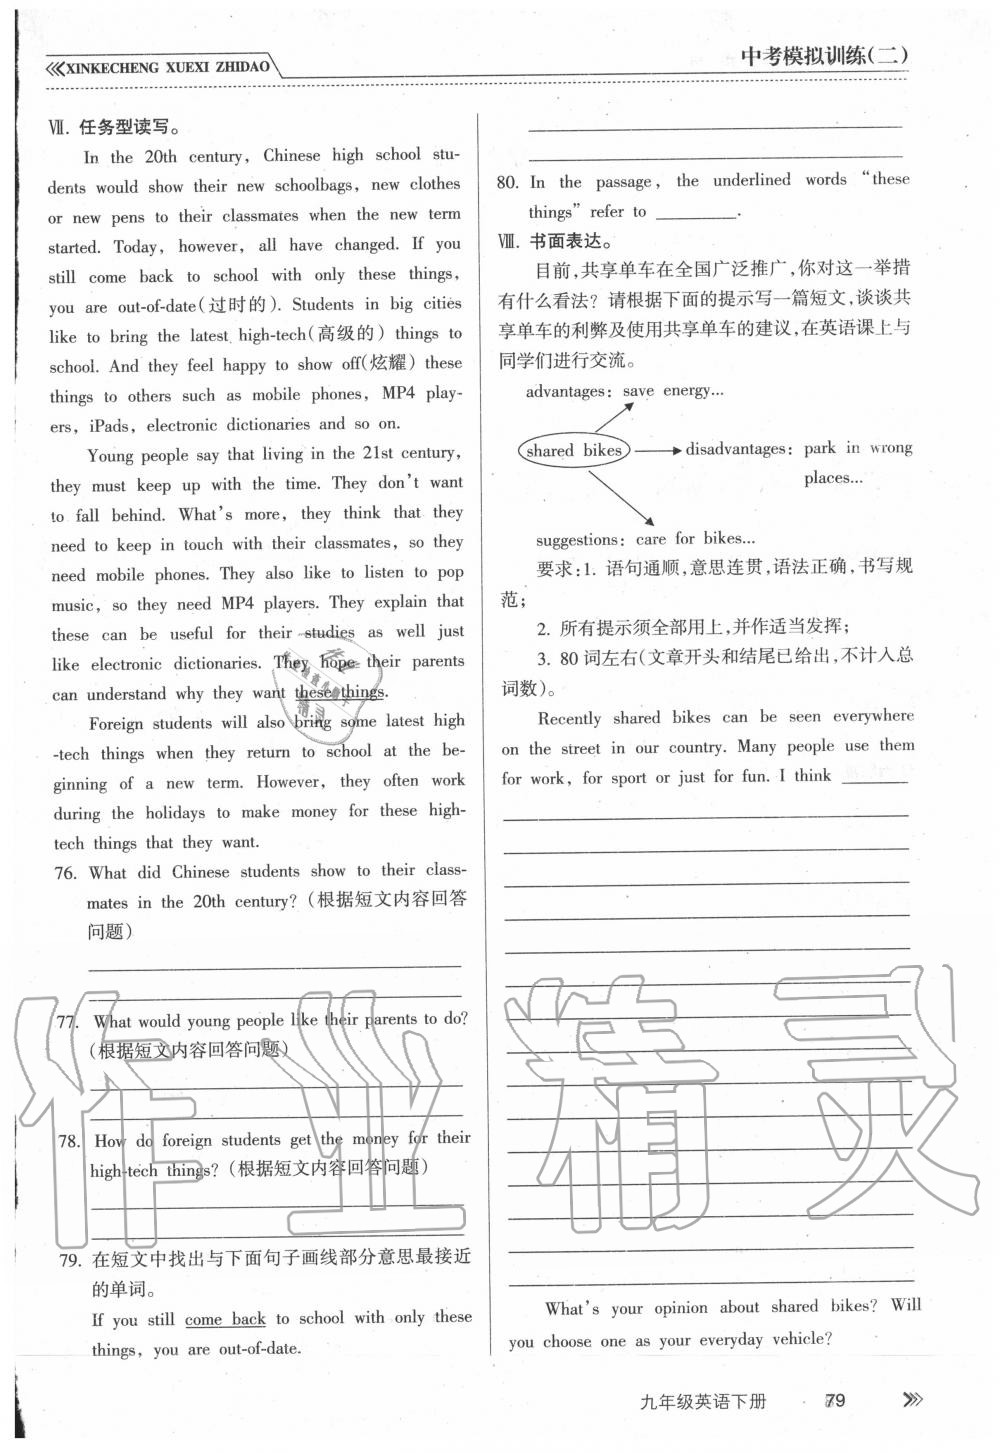 XINKECHENG XUEXI ZHIDAO
中考模拟训练(二)
Ⅶ. 任务型读写。
In the 20th century, Chinese high school stu-
dents would show their new schoolbags, new clothes
or new pens to their classmates when the new term
started. Today, however, all have changed. If you
still come back to school with only these things,
you are out-of-date(过时的). Students in big cities
like to bring the latest high-tech(高级的) things to
school. And they feel happy to show off(炫耀) these
things to others such as mobile phones, MP4 play-
ers, iPads, electronic dictionaries and so on.
Young people say that living in the 21st century,
they must keep up with the time. They don't want
to fall behind. What's more, they think that they
need to keep in touch with their classmates, so they
need mobile phones. They also like to listen to pop
music, so they need MP4 players. They explain that
these can be useful for their studies as well just
like electronic dictionaries. They hope their parents
can understand why they want these things.
Foreign students will also bring some latest high
-tech things when they return to school at the be-
ginning of a new term. However, they often work
during the holidays to make money for these high-
tech things that they want.
76. What did Chinese students show to their class-
mates in the 20th century? (根据短文内容回答
问题)
77. What would young people like their parents to do?
(根据短文内容回答问题)
78. How do foreign students get the money for their
high-tech things? (根据短文内容回答问题)
79. 在短文中找出与下面句子画线部分意思最接近
的单词。
If you still come back to school with only these
things, you are out-of-date.
80. In the passage, the underlined words “these
things” refer to ________.
Ⅷ. 书面表达。
目前,共享单车在全国广泛推广,你对这一举措
有什么看法? 请根据下面的提示写一篇短文,谈谈共
享单车的利弊及使用共享单车的建议,在英语课上与
同学们进行交流。
advantages: save energy...
shared bikes
disadvantages: park in wrong
places...
suggestions: care for bikes...
要求:1. 语句通顺,意思连贯,语法正确,书写规
范;
2. 所有提示须全部用上,并作适当发挥;
3. 80 词左右(文章开头和结尾已给出,不计入总
词数)。
Recently shared bikes can be seen everywhere
on the street in our country. Many people use them
for work, for sport or just for fun. I think ________
What's your opinion about shared bikes? Will
you choose one as your everyday vehicle?
九年级英语下册
79
作业精灵